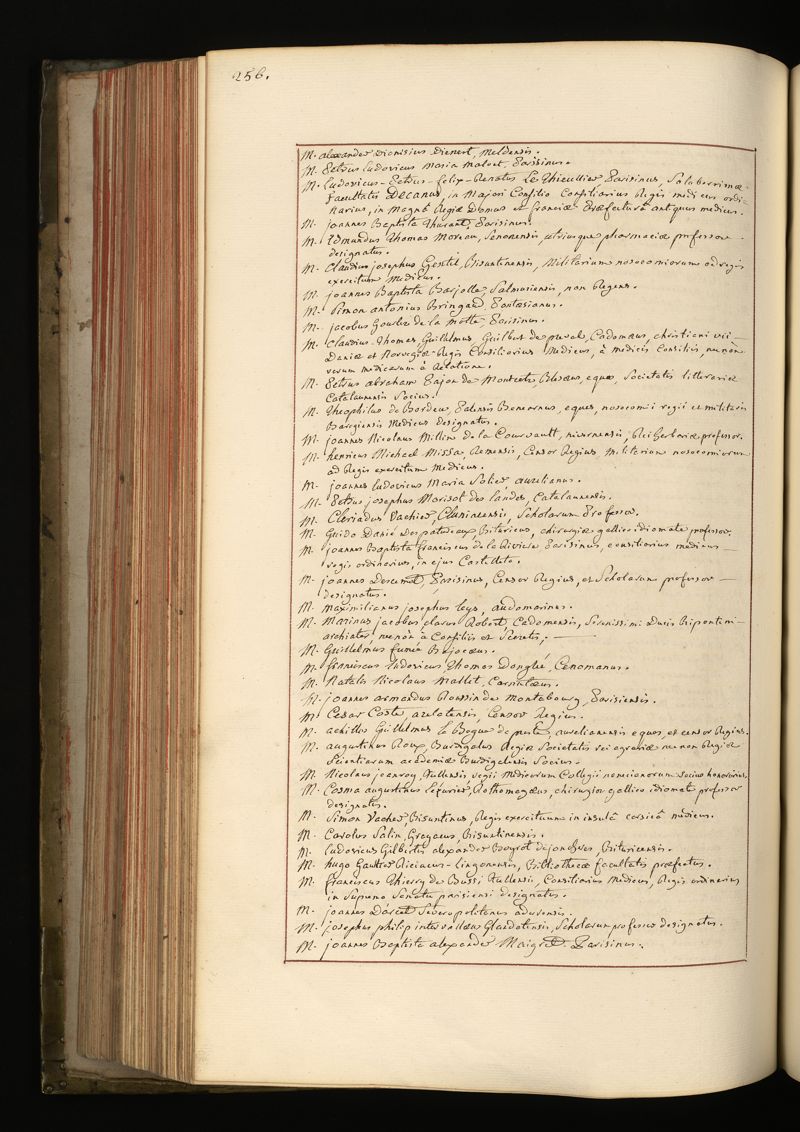 256.
M. alexander Dionisius Dienert, Meldensis.
M. Petrus Ludovicus Maria Maloet, Parisinus.
M. Ludovicus-Petrus-felix-Renatus Le Thieullier Parisinus, Saluberrimæ
facultatis Decanus, in Majori Consilio Consiliarius Regis medicus ordi-
narius, in Magnâ Regiæ Domus et franciæ Præfecturâ antiquus medicus.
M. joannes Baptista Thurant, Parisinus.
M. Edmundus Thomas Moreau, Senonensis, utriusque pharmaciæ professor
designatus.
M. Claudius josephus Gentil, Bisuntinensis, Militarium nosocomiorum ad regis
exercitum Medicus.
M. joannes Baptista Barjolle, Salmuriensis, non Regens.
M. Simon antonius Bringaud, Pontæsianus.
M. jacobus Gourlez de la Motte, Parisinus.
M. Claudius-Thomas, Guillelmus, Guilbert de preval, Cadomæus, christiani vii
Daniæ et Norvegiæ Regis Consiliarius Medicus, à medicis Consiliis, necnon
rerum medicarum à Relatione.
M. Petrus abraham Pajon de Moncets, Blesæus, eques, Societatis litterariæ
Catalaunensis Socius.
M. Theophilus de Bordeu, Palensis Benearnus, eques, nosocomii regii et militaris
Baregiensis Medicus designatus.
M. joannes Nicolaus Millin de la Courvault, nivernensis, Rei herbariæ professor.
M. henricus Michael Missa, Remensis, Censor Regius, Militarium nosocomiorum
ad Regis exercitum Medicus.
M. joannes Ludovicus Maria Solier, aurelianus.
M. Petrus josephus Morisot des landes, Catalaunensis.
M. Cleriadus Vachier, Cluniacensis, Scholarum Professor.
M. Guido Danié Despatureaux, Bituricus, chirurgiæ gallico idiomate professor.
M. joannes Baptista franciscus de la Riviere Parisinus, consiliarius medicus
regis ordinarius, in ejus Castelleto.
M. joannes Descemet, Parisinus, Censor Regius, et Scholarum professor
designatus.
M. Maximilianus josephus Leys, audomarinus.
M. Marinus jacobus clarus Robert, Cadomensis, Serenissimi Ducis Bipontini
archiater, necnon à Consiliis et Secretis.
M. Guillelmus fumée Bajocæus.
M. franciscus Ludovicus Thomas Donglié, Cenomanus.
M. Natalis Nicolaus Mallet, Carnutæus.
M. joannes armandus Roussin de Montabourg, Parisiensis.
M. Cesar Coste, arelatensis, Censor Regius.
M. achilles Guillelmus le Begue de presle, aurelianensis eques, et censor Regius.
M. augustinus Roux, Burdigalus Regiæ Societatis rei agrariæ necnon Regiæ
Scientiarum academiæ Burdigalensis Socius.
M. Nicolaus joanroy, Tullensis, regii Medicorum Collegii nanceianorum socius honorarius.
M. Cosma augustinus Lezurier, Rothomagæus, chirurgiæ gallico idiomate professor
designatus.
M. Simon Vacher, Bisuntinus, Regis exercituum in insulâ corsicâ medicus.
M. Carolus Salin, Grayacus, Bisuntinensis.
M. Ludovicus Gilbertus alexander Boyrot de jonchere, Bituricensis.
M. hugo Gauthier Riciacus-Lingonensis, Bibliothecæ facultatis præfectus.
M. franciscus Thierry de Bussi Tullensis, Consiliarius Medicus, Regis ordinarius
in Supremo Senatu parisiensi designatus.
M. joannes Darcet Severopolitanus adurensis.
M. josephus philip intervallæus Glandatensis, Scholarum professor designatus.
M. joannes Baptista alexander Maigret Parisinus.